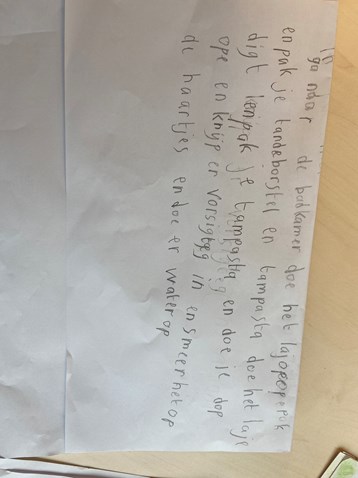 ga naar de badkamer doe het lajope pak
en pak je tandeborstel en tampasta doe het laje
digt en pak je tampasta en doe je dop
ope en knijp er vorsigtig in en smeer het op
de haartjes en doe er water op